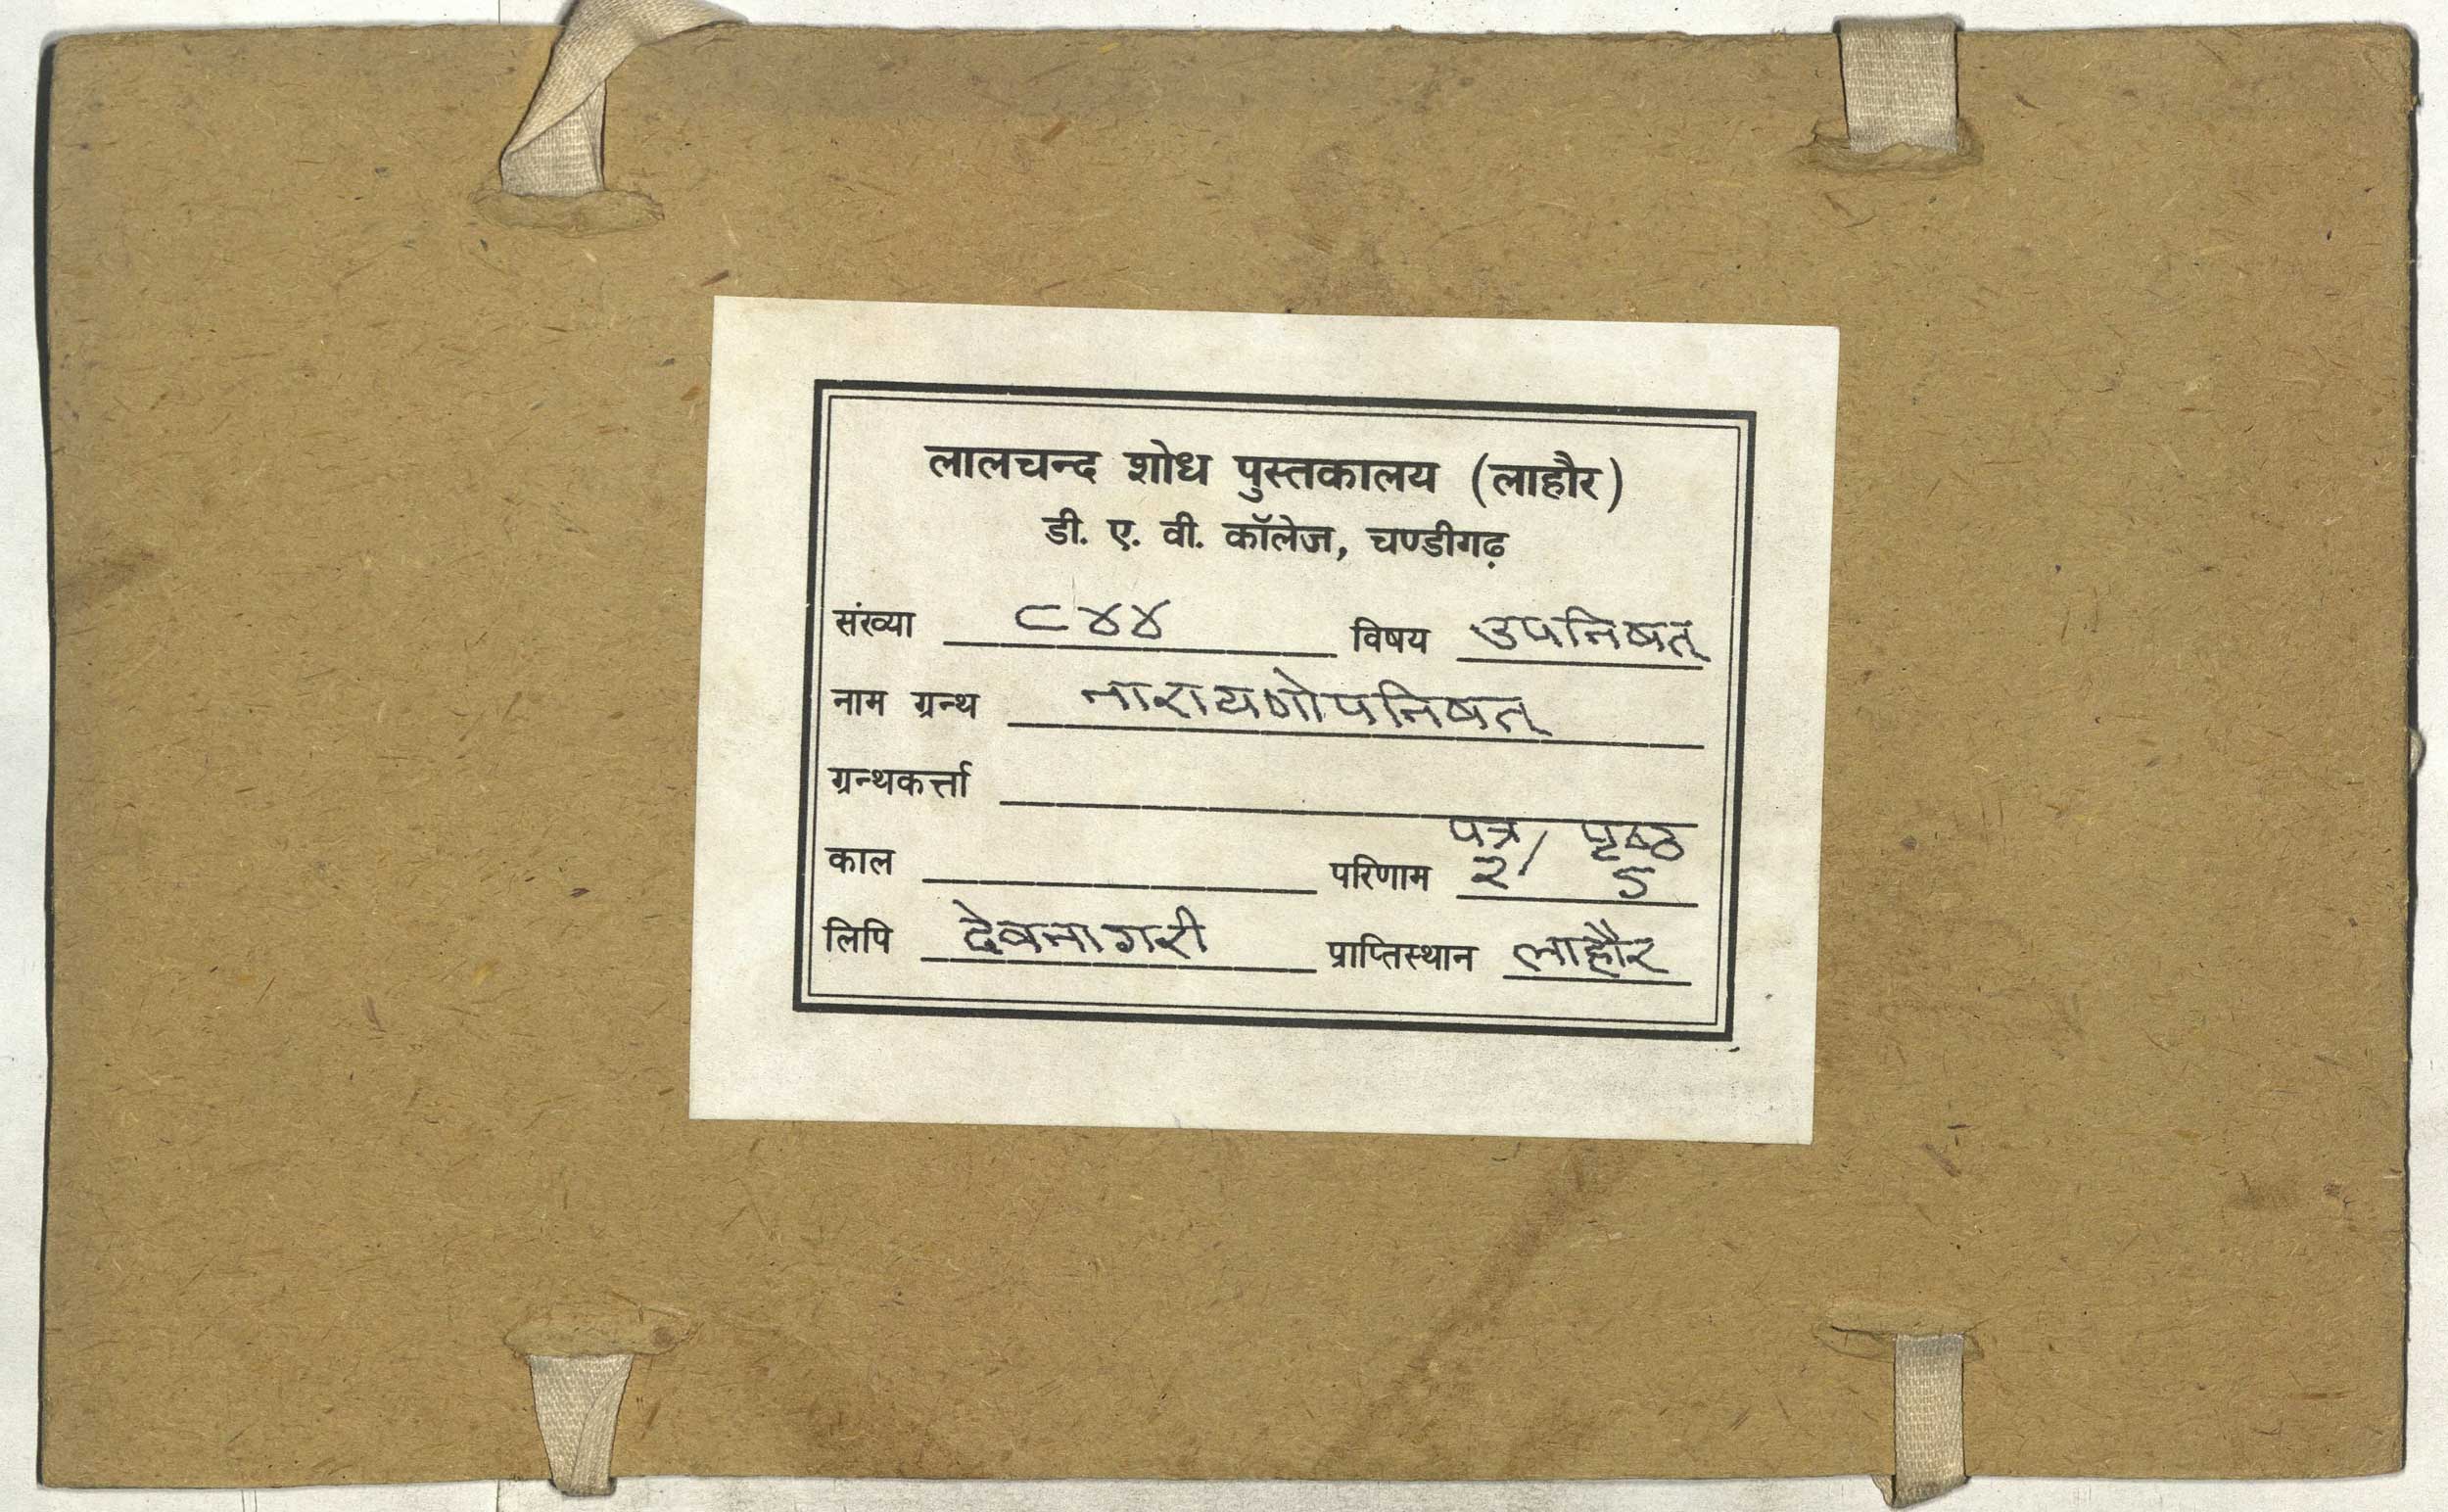 लालचन्द शोध पुस्तकालय (लाहौर)
डी. ए. वी. कॉलेज, चण्डीगढ़
संख्या ८४४ विषय उपनिषत्
नाम ग्रन्थ नारायणोपनिषत्
ग्रन्थकर्त्ता
पत्र/ पृष्ठ
काल परिणाम २/ ५
लिपि देवनागरी प्राप्तिस्थान लाहौर